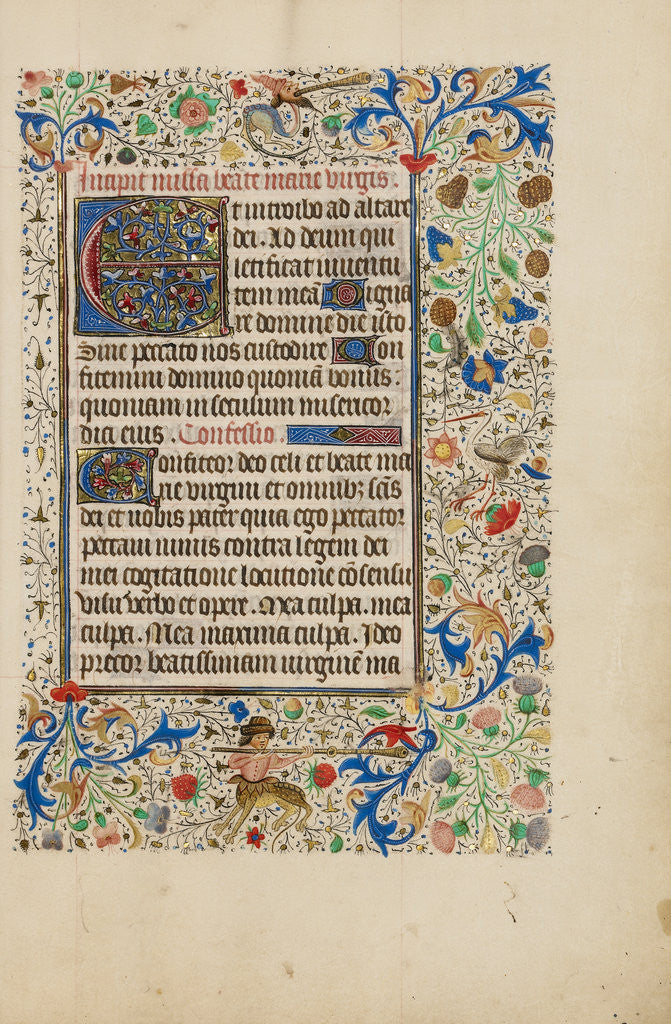 Incipit missa beate marie virgis.
Et introibo ad altare
dei. Ad deum qui
letificat iuuentu
tem meā Digna
re domine die isto.
Sine peccato nos custodire Con
fitemini domino quoniā bonus.
quoniam in seculum misericor
dia eius. Confessio.
Confiteor deo celi et beate ma
rie virgini et omnibꝫ scīs
dei et uobis pater quia ego peccator
peccaui nimis contra legem dei
mei cogitatione locutione cōsensu
visu verbo et opere. Mea culpa. mea
culpa. Mea maxima culpa. Ideo
precor beatissimam uirginē ma